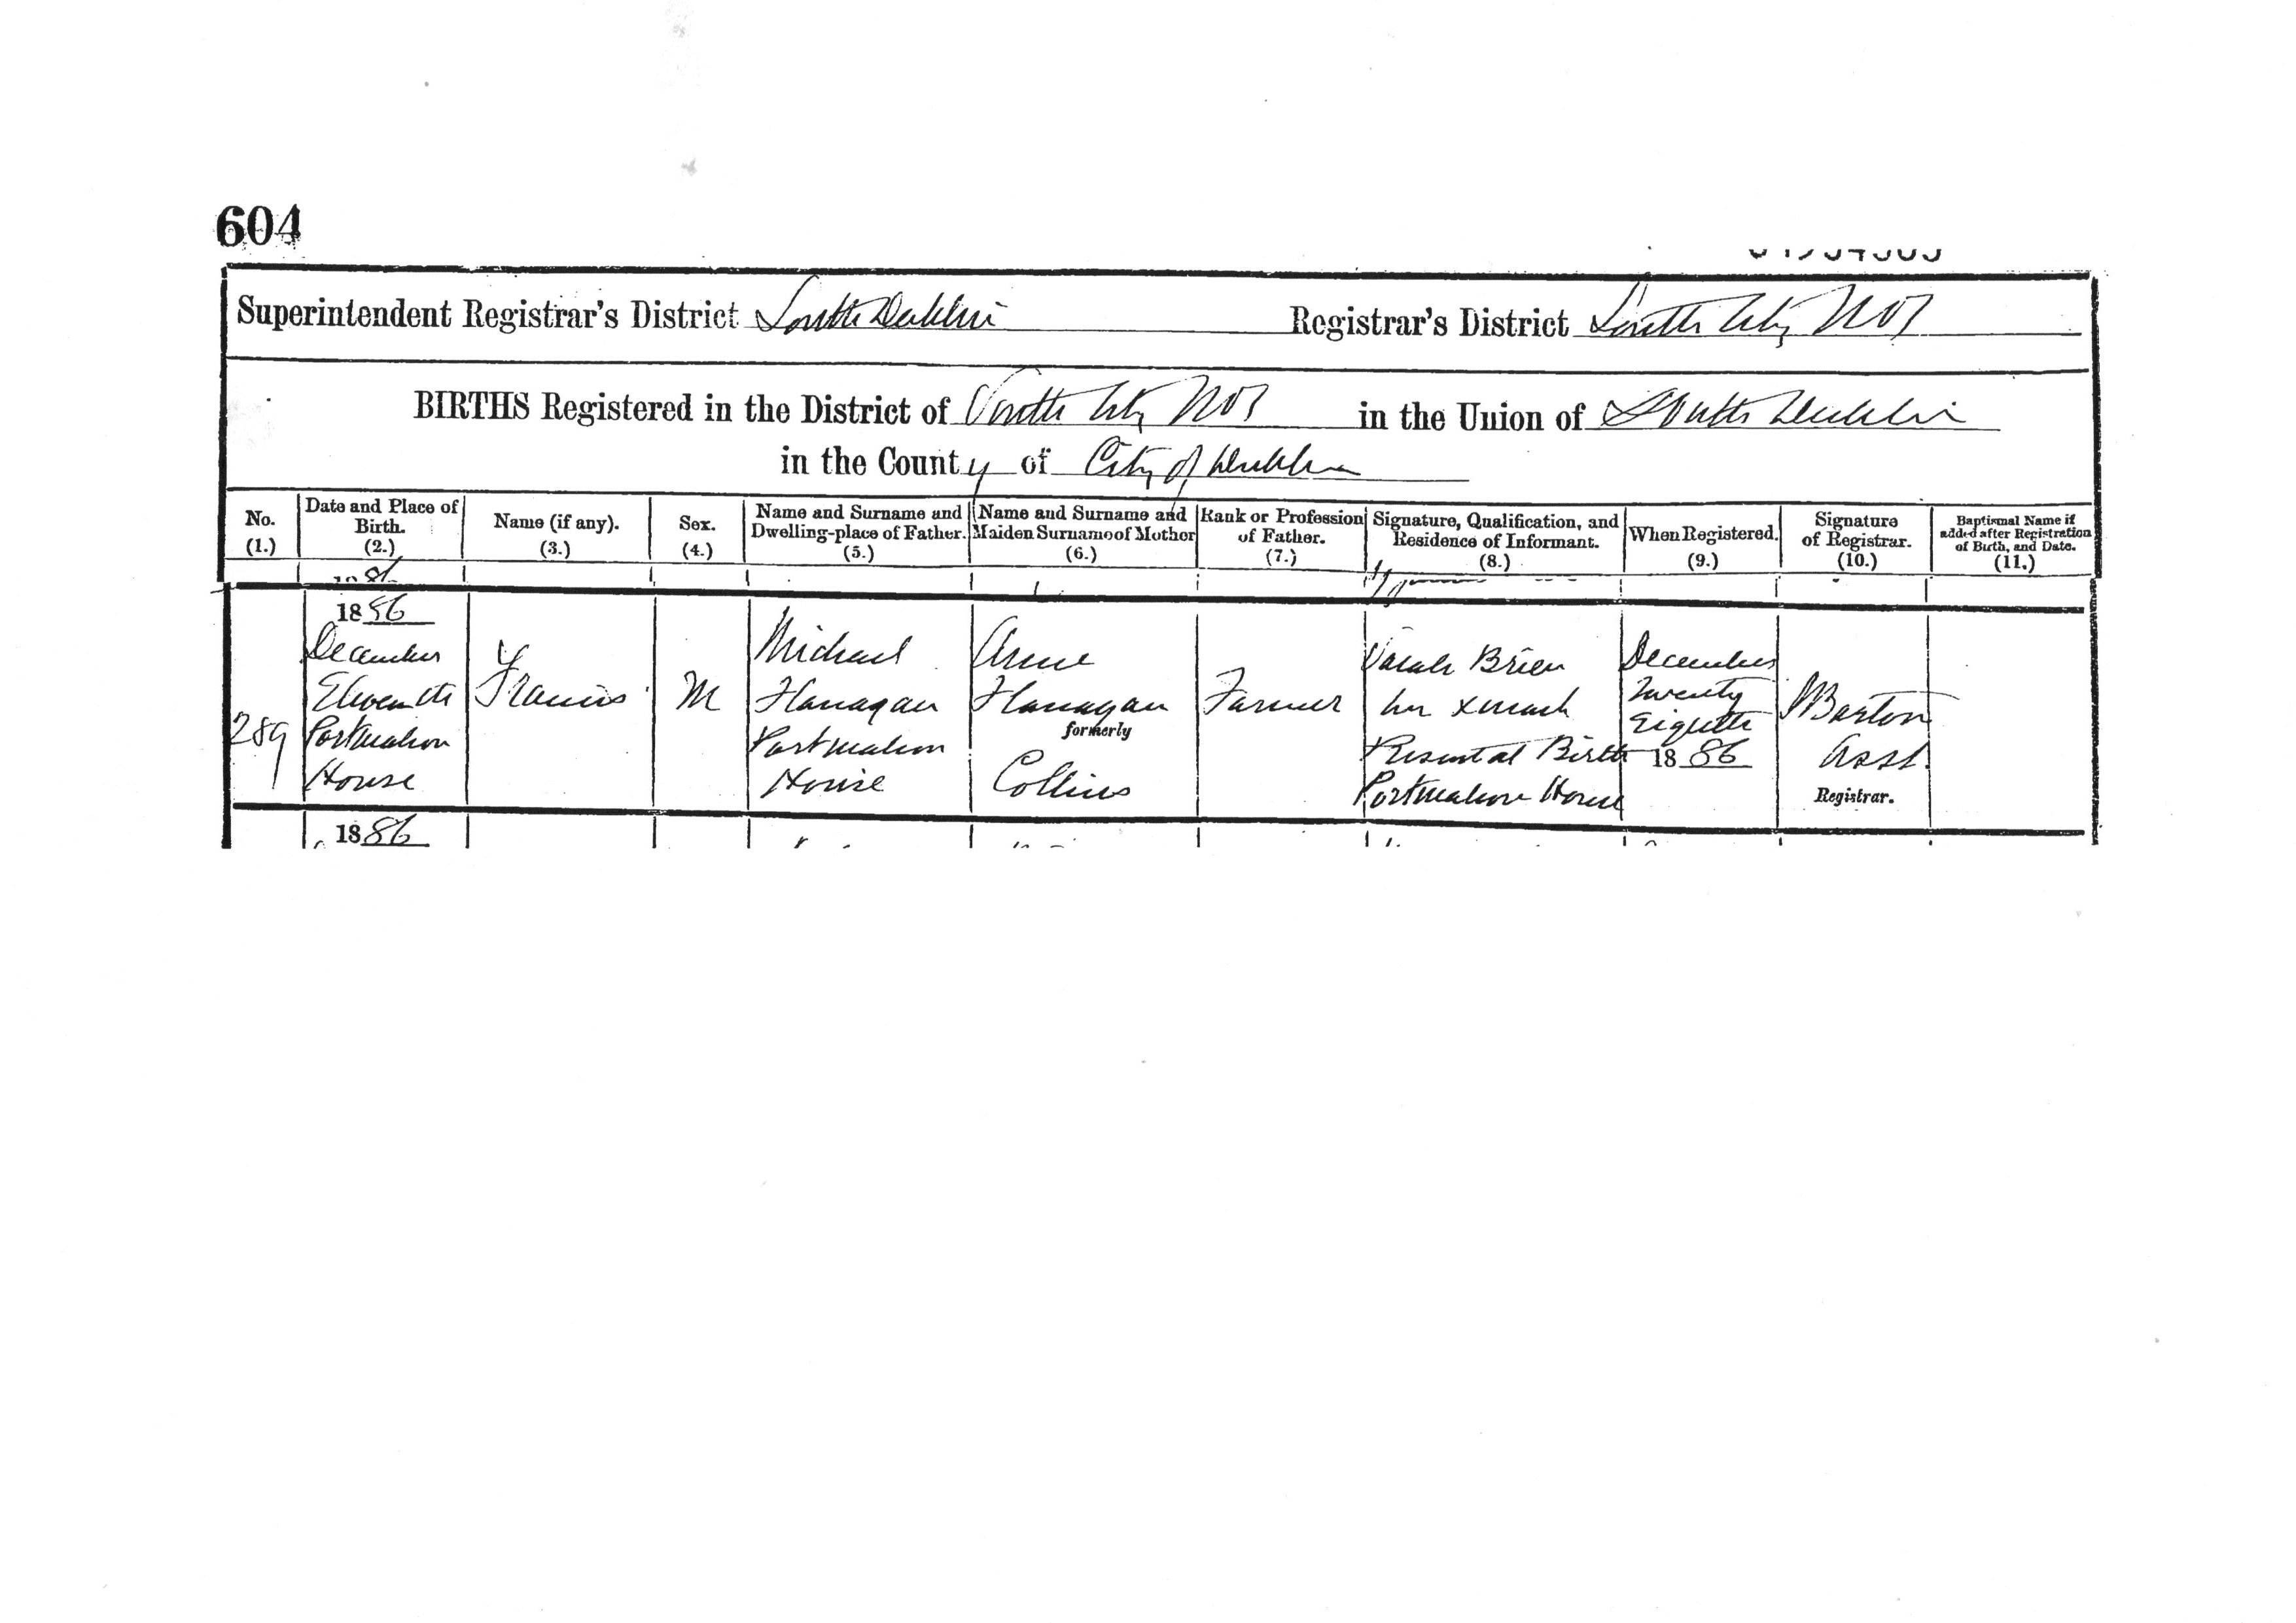 604
Superintendent Registrar's District South Dublin Registrar's District South City No 1
BIRTHS Registered in the District of South City No 1 in the Union of South Dublin
in the County of City of Dublin
No. (1.)
Date and Place of Birth. (2.)
Name (if any). (3.)
Sex. (4.)
Name and Surname and Dwelling-place of Father. (5.)
Name and Surname and Maiden Surname of Mother (6.)
Rank or Profession of Father. (7.)
Signature, Qualification, and Residence of Informant. (8.)
When Registered. (9.)
Signature of Registrar. (10.)
Baptismal Name if added after Registration of Birth, and Date. (11.)
289
1886
December
Eleventh
Portmahon
House
Francis
M
Michael
Flanagan
Portmahon
House
Anne
Flanagan
formerly
Collins
Farmer
Sarah Brien
her x mark
Present at Birth
Portmahon House
December
Twenty
Eighth
1886
Barton
Asst.
Registrar.
1886